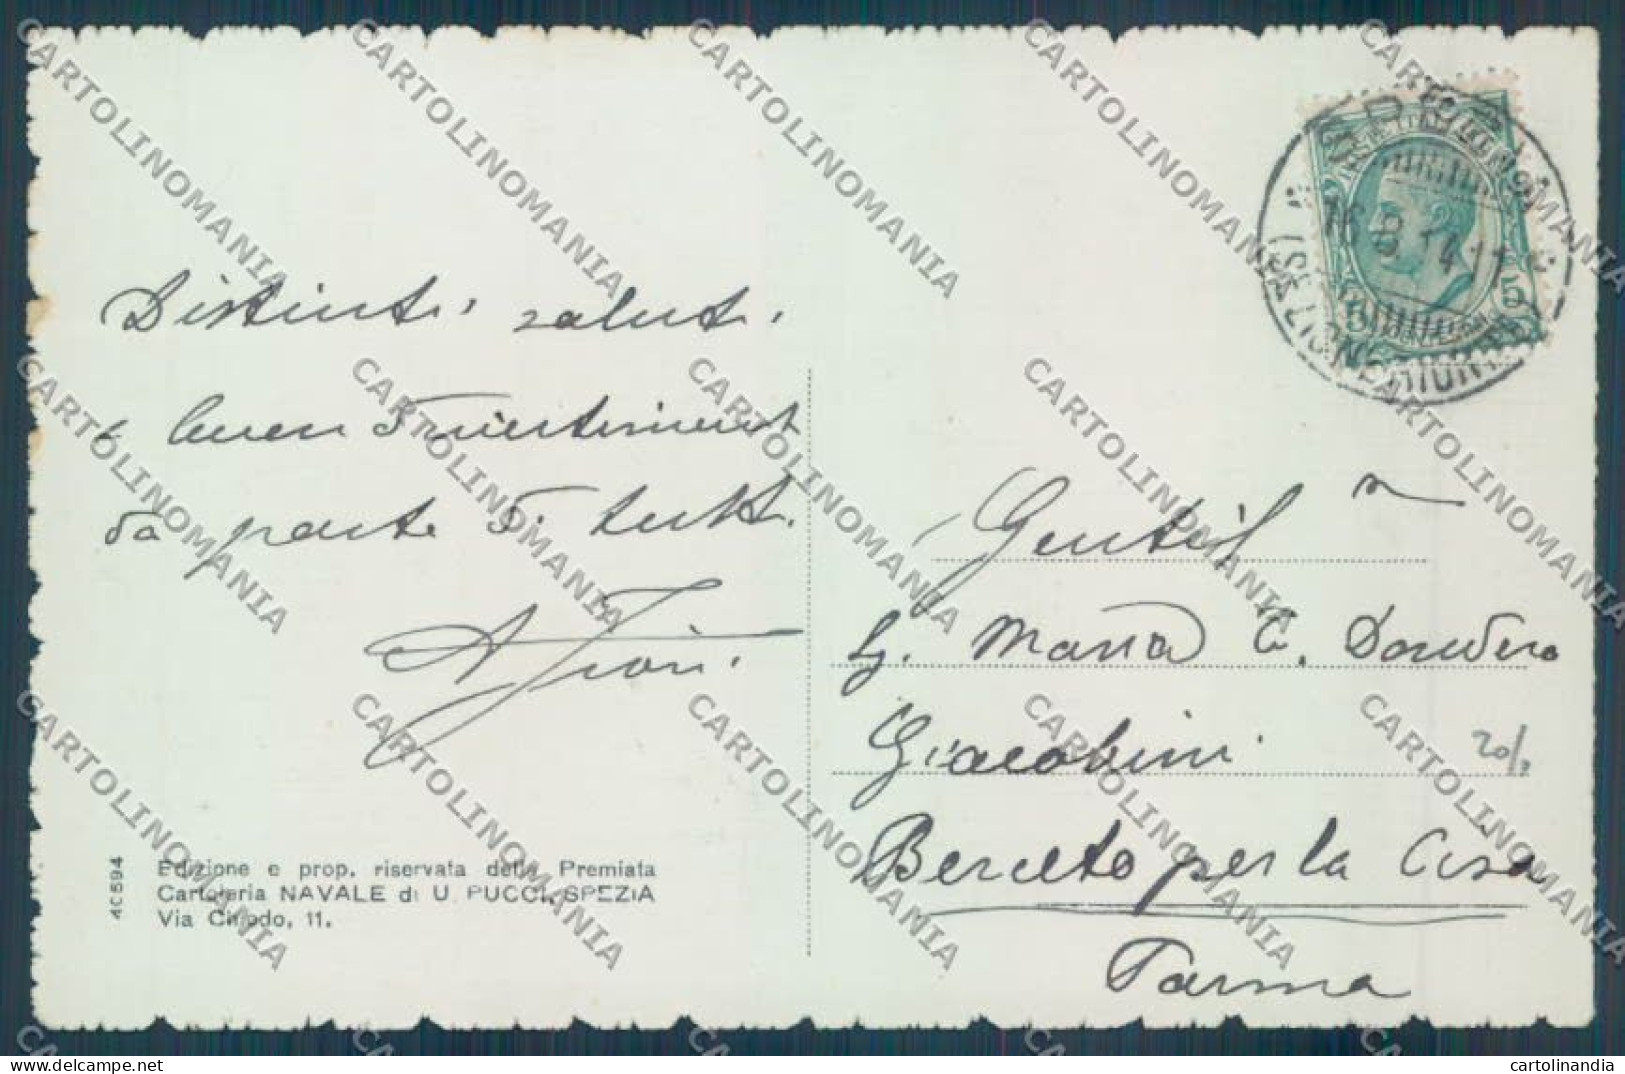 Distinti saluti
e buon divertimento
da parte di tutti.
A. Fiori.
Gentil
Maria C. Dondero
Giacobini
Berceto per la Cisa
Parma
20/
16 8 14 17
5 5
Edizione e prop. riservata della Premiata
Cartoleria NAVALE di U. PUCCI, SPEZIA
Via Chiodo, 11.
40594
CARTOLINOMANIA
cartolinandia